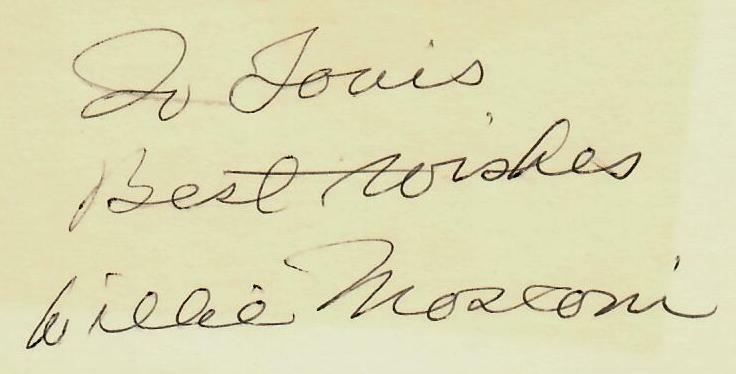 To Louis
Best Wishes
Willie Mosconi